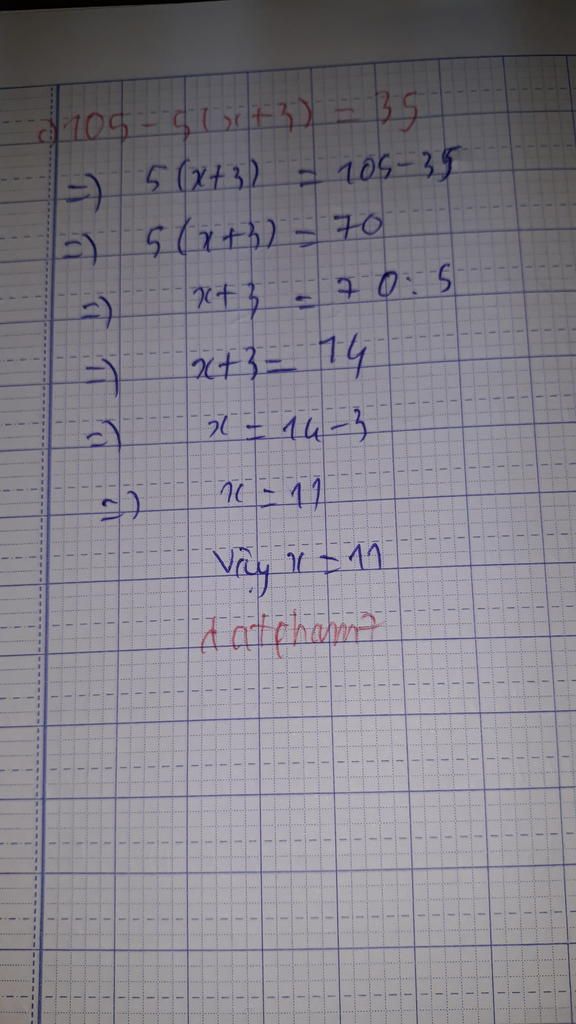 c) 105 - 5(x+3) = 35
=) 5(x+3) = 105-35
=) 5(x+3) = 70
=) x+3 = 70:5
=) x+3 = 14
=) x = 14-3
=) x = 11
Vậy x = 11